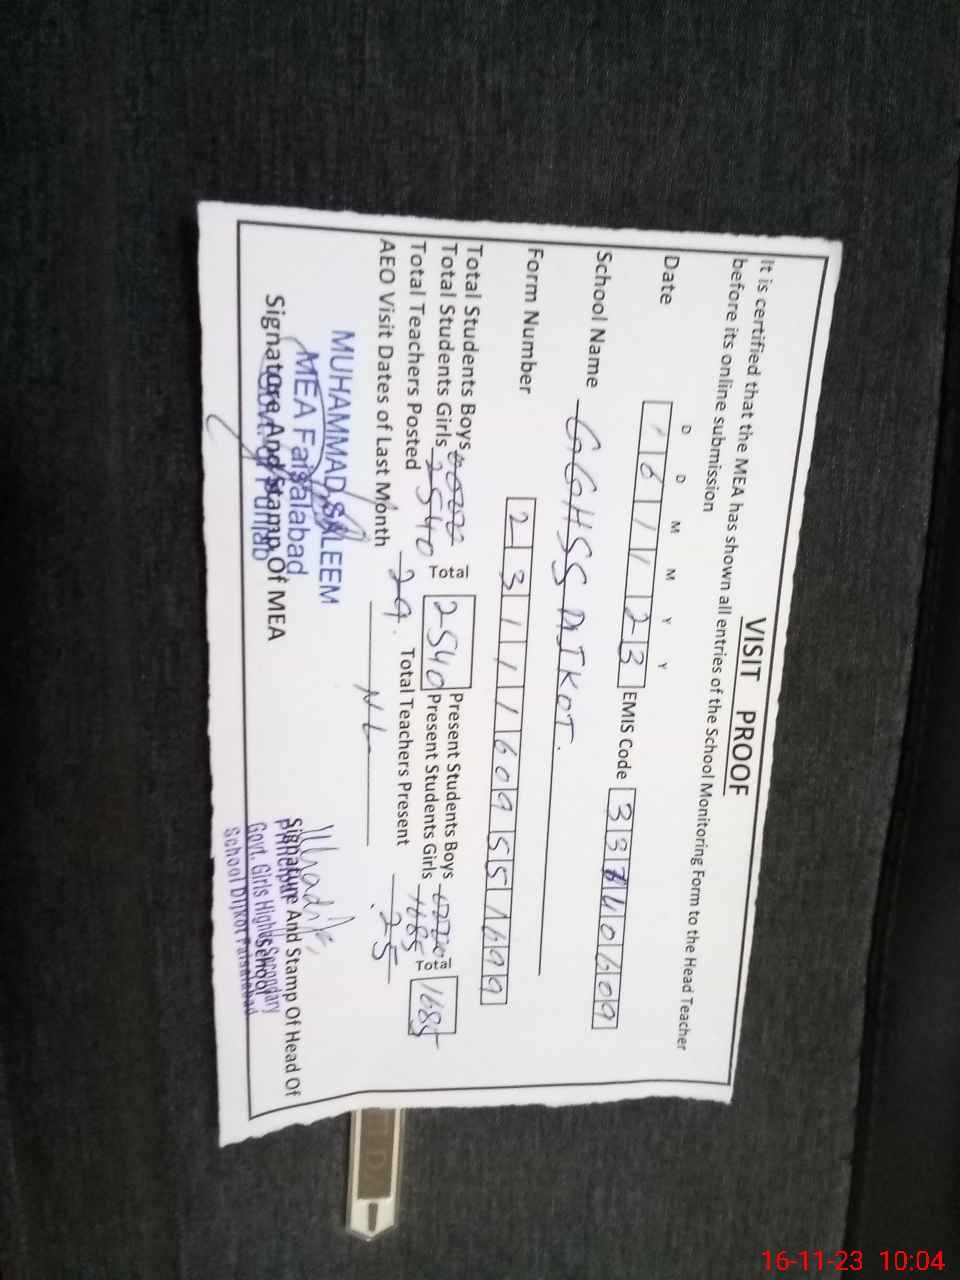 VISIT PROOF
It is certified that the MEA has shown all entries of the School Monitoring Form to the Head Teacher
before its online submission
D D M M Y Y
Date 16 11 23 EMIS Code 33740609
School Name GGHSS DIJKOT.
Form Number 23111609551699
Total Students Boys 0000 Total 2540 Present Students Boys 0000 Total 1685
Total Students Girls 2540 Present Students Girls 1685
Total Teachers Posted 29. Total Teachers Present 25
AEO Visit Dates of Last Month NL
MUHAMMAD SALEEM
MEA Faisalabad
Govt. of Punjab
Signature And Stamp Of MEA
Signature And Stamp Of Head Of
School
Principal
Govt. Girls High Secondary
School Dijkot Faisalabad
16-11-23 10:04